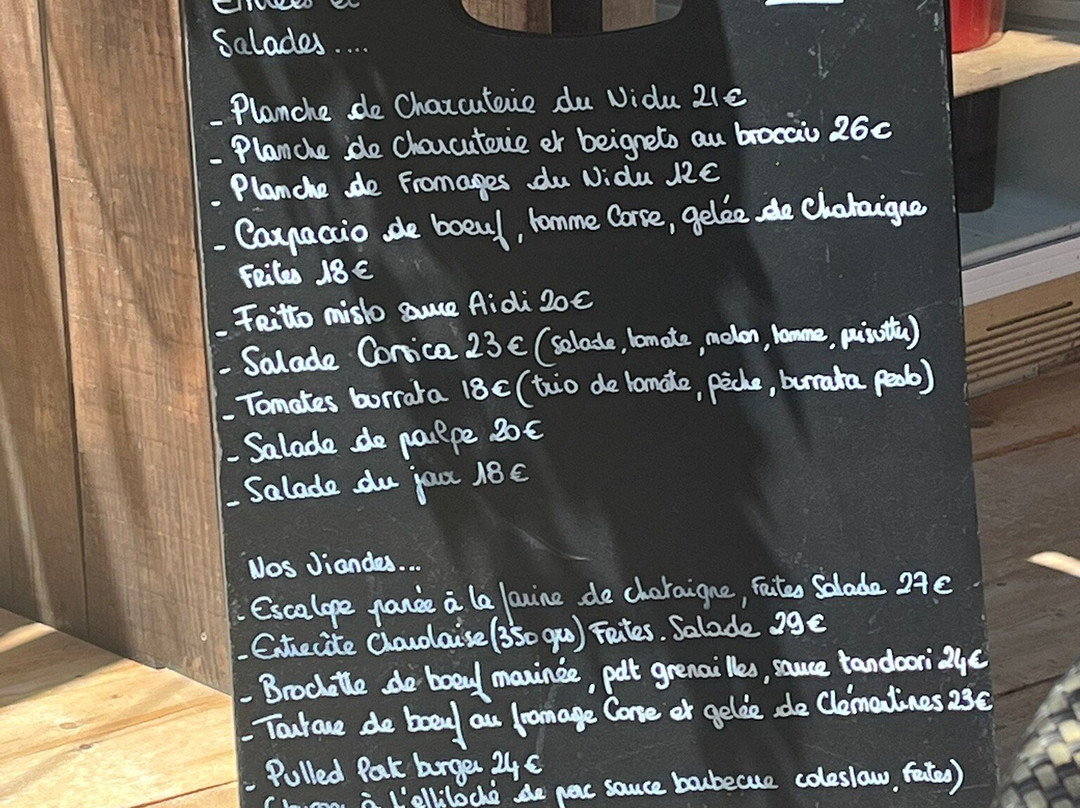 Entrées et
Salades ....
- Planche de Charcuterie du Nidu 21€
- Planche de charcuterie et beignets au brocciu 26€
- Planche de Fromages du Nidu 12€
- Carpaccio de boeuf, tomme Corse, gelée de Chataigne
Frites 18€
- Fritto misto sauce Aioli 20€
- Salade Corsica 23€ (salade, tomate, melon, tomme, prisuttu)
- Tomates burrata 18€ (trio de tomate, pêche, burrata pesto)
- Salade de poulpe 20€
- Salade du jour 18€
Nos Viandes...
- Escalope panée à la farine de chataigne, Frites Salade 27€
- Entrecôte Charolaise (350 grs) Frites. Salade 29€
- Brochette de boeuf marinée, pdt grenailles, sauce tandoori 24€
- Tartare de boeuf au fromage Corse et gelée de Clémentines 23€
- Pulled Pork burger 24€
à l'effiloché de porc sauce barbecue coleslaw, frites)